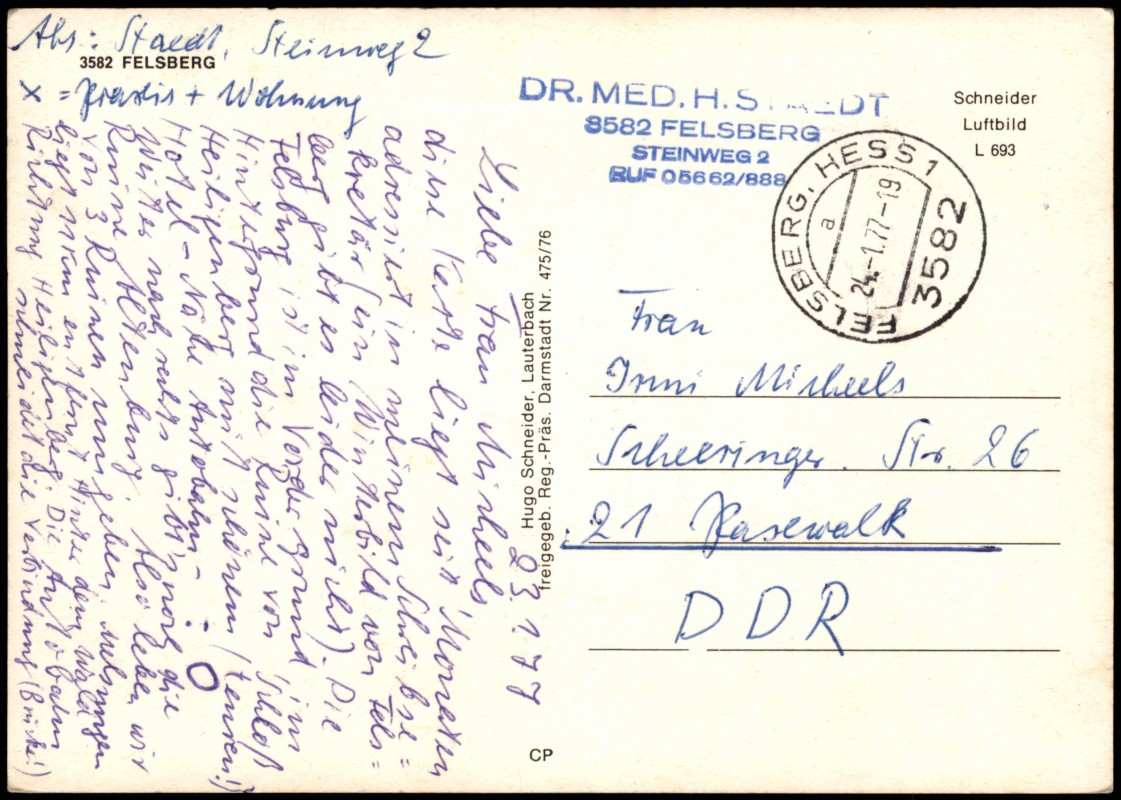 Abs: Staedt, Steinweg 2
3582 FELSBERG
x = Praxis + Wohnung
23.1.77
Liebe Frau Micheels,
diese Karte liegt seit Monaten
adressiert in meinem Schreibse=
kretär (ein Winterbild von Fels=
berg gibt es leider nicht). Die
Felsburg ist im Vordergrund, im
Hintergrund die Ruine von Schloß
Heiligenberg mit schönem (teuren!)
Hotel - Nähe Autobahn - O
Weiter nach rechts gibt's noch die
Ruine Altenburg. Also leben wir
von 3 Ruinen umgeben. Melsungen
liegt 10 km entfernt hinter dem Wald
Richtung Heiligenberg. Die Autobahn
schneidet die Verbindung (Brücke!)
Hugo Schneider, Lauterbach
freigegeb. Reg.-Präs. Darmstadt Nr. 475/76
CP
DR. MED. H. STAEDT
3582 FELSBERG
STEINWEG 2
RUF 05662/888
Schneider
Luftbild
L 693
FELSBERG, HESS 1
a
24.-1.77-19
3582
Frau
Irmi Micheels
Scheeringer. Str. 26
21 Pasewalk
DDR